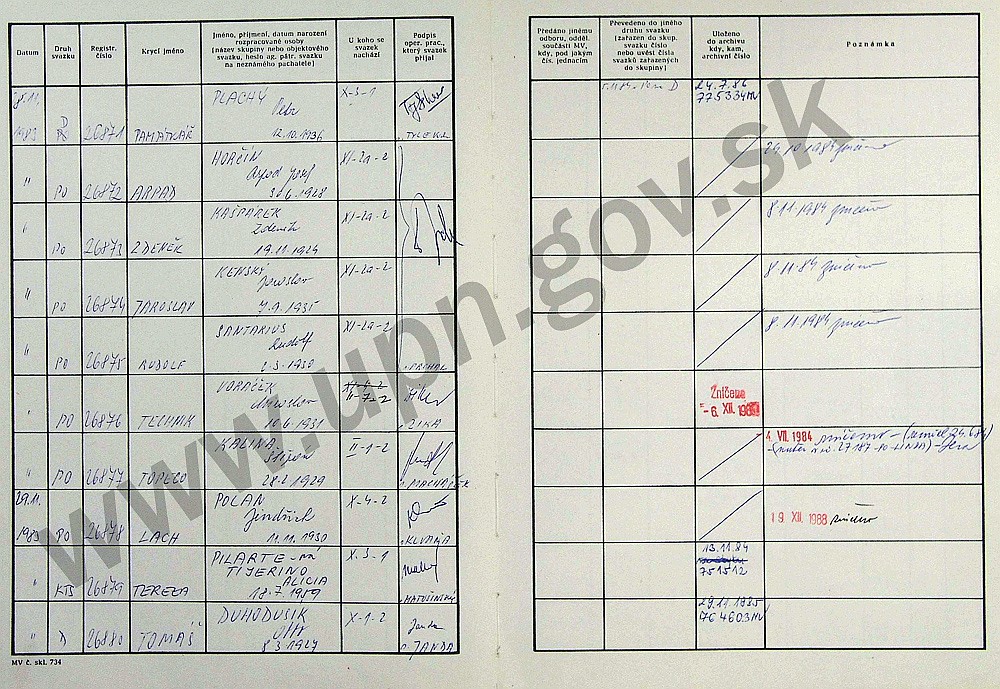 Datum
Druh svazku
Registr. číslo
Krycí jméno
Jméno, příjmení, datum narození
rozpracované osoby
(název skupiny nebo objektového
svazku, heslo ag. pátr. svazku
na neznámého pachatele)
U koho se
svazek
nachází
Podpis
oper. prac.,
který svazek
přijal
Předáno jinému
odboru, odděl.
součásti MV,
kdy, pod jakým
čís. jednacím
Převedeno do jiného
druhu svazku
(zařazen do skup.
svazku číslo
nebo uvést čísla
svazků zařazených
do skupiny)
Uloženo
do archivu
kdy, kam,
archivní číslo
Poznámka
PLACHÝ X-3-1 24.7.86
Petr 775334MV
1983 D 26871 PAMÁTKÁŘ 12.10.1936
HORČÍN XI-2a-2 24.10.1984 zničeno
" PO 26872 ARPÁD
KAŠPÁREK XI-2a-2 8.11.1984 zničeno
Zdeněk
" PO 26873 ZDENĚK 19.11.1924
KENSKÝ XI-2a-2 8.11.84 zničeno
Jaroslav
" PO 26874 JAROSLAV 7.9.1935
SANTARIUS XI-2a-2 8.11.1984 zničeno
Rudolf
" PO 26875 RUDOLF 2.3.1930
VORÁČEK II-7-2 Zničeno
Miroslav -6. XII.
" PO 26876 TECHNIK 10.6.1931 ZIKA
KALINA II-1-2 4. VII. 1984 zničeno
Štěpán
" PO 26877 TOPLCO 28.2.1929 MACHÁČEK
29.11. POLÁN X-4-2
Jindřich 19. XII. 1988 zničeno
1983 PO 26878 LACH 11.11.1930 KLVAŇA
PILARTE-ná X-3-1 13.11.84
TIJERINO 751512
ALICIA
" KTS 26879 TEREZA 18.7.1959 MATUŠINSKÝ
DUHODUSIK X-1-2 29.11.1985
Otto Janda 764603MV
" D 26880 TOMÁŠ 8.3.1927 JANDA
MV č. skl. 734
www.upn.gov.sk